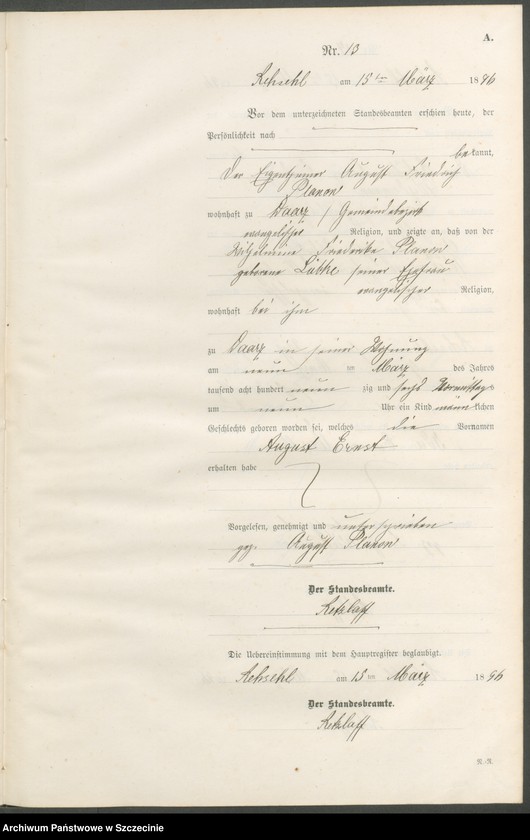 A.
Nr. 13
Rehsehl am 15ten März 1896
Vor dem unterzeichneten Standesbeamten erschien heute, der
Persönlichkeit nach
bekannt,
der Eigenthümer August Friedrich
Planow
wohnhaft zu Daarz / Gemeindebezirk
evangelischer Religion, und zeigte an, daß von der
Wilhelmine Friederike Planow
geborene Lübke seiner Ehefrau
evangelischer Religion,
wohnhaft bei ihm
zu Daarz in seiner Wohnung
am neun ten März des Jahres
tausend acht hundert neun zig und sechs Vormittags
um neun Uhr ein Kind männlichen
Geschlechts geboren worden sei, welches die Vornamen
August Ernst
erhalten habe
Vorgelesen, genehmigt und unterschrieben
gez. August Planow
Der Standesbeamte.
Retzlaff
Die Uebereinstimmung mit dem Hauptregister beglaubigt.
Rehsehl am 15ten März 1896
Der Standesbeamte.
Retzlaff
N.-R.
Archiwum Państwowe w Szczecinie